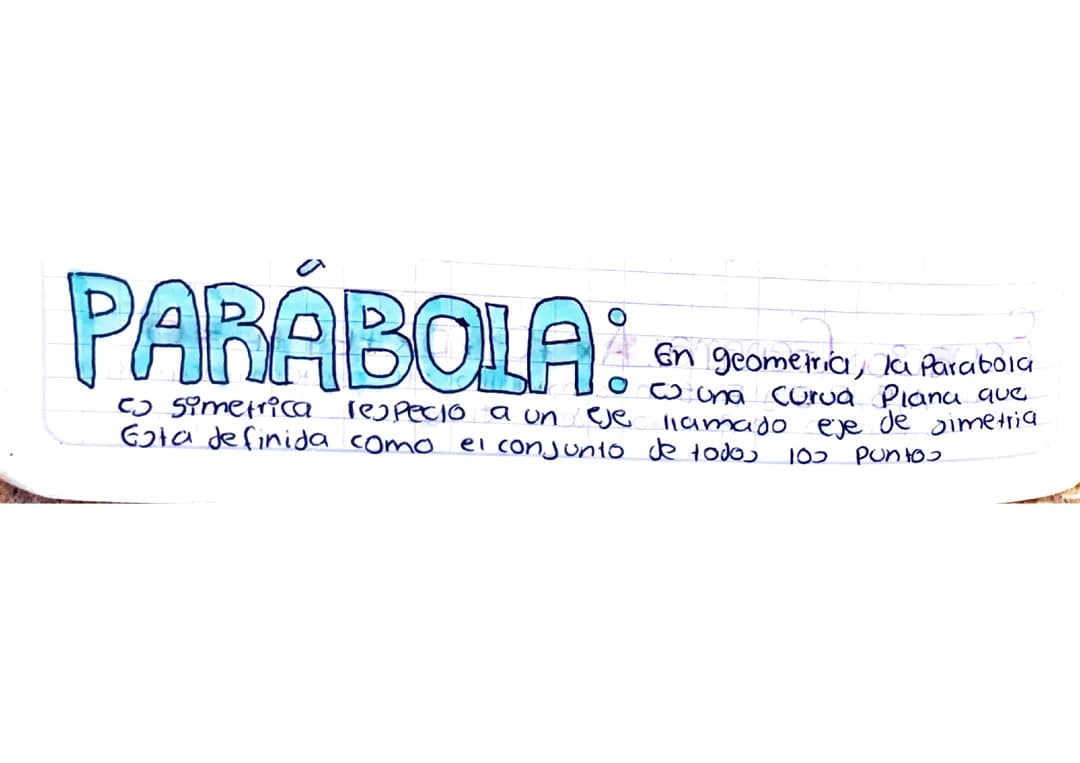 PARÁBOLA: En geometria, la Parabola
es una curva Plana que
es simetrica respecto a un eje llamado eje de simetria
Esta definida como el conjunto de todos los puntos